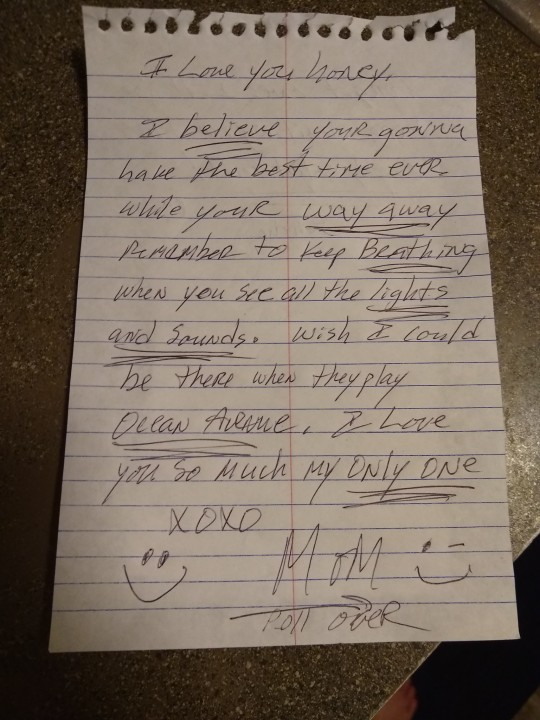 I Love you honey,
I believe your gonna
have the best time ever
while your way away
remember to keep Breathing
when you see all the lights
and Sounds. Wish I could
be there when they play
Ocean Avenue. I Love
you so much my Only One
XOXO
MOM
roll over